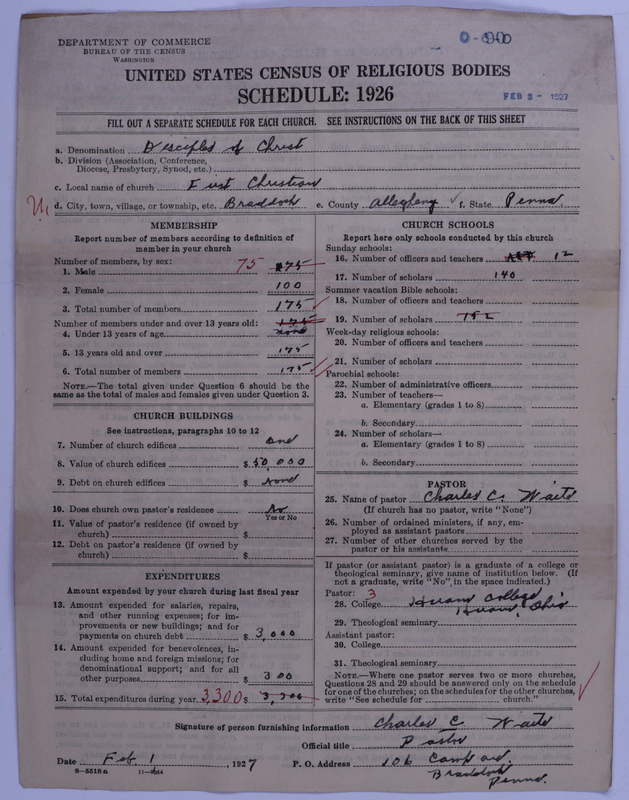 DEPARTMENT OF COMMERCE
BUREAU OF THE CENSUS
WASHINGTON
UNITED STATES CENSUS OF RELIGIOUS BODIES
SCHEDULE: 1926
FEB 3 - 1927
FILL OUT A SEPARATE SCHEDULE FOR EACH CHURCH. SEE INSTRUCTIONS ON THE BACK OF THIS SHEET
a. Denomination Disciples of Christ
b. Division (Association, Conference,
Diocese, Presbytery, Synod, etc.)
c. Local name of church First Christian
d. City, town, village, or township, etc. Braddock e. County Allegheny ✓ f. State Penna
MEMBERSHIP
Report number of members according to definition of
member in your church
Number of members, by sex:
1. Male 75 75
2. Female 100
3. Total number of members 175
Number of members under and over 13 years old: 175
4. Under 13 years of age none
5. 13 years old and over 175
6. Total number of members 175
NOTE.—The total given under Question 6 should be
same as the total of males and females given under Question 3.
CHURCH BUILDINGS
See instructions, paragraphs 10 to 12
7. Number of church edifices one
8. Value of church edifices $ 50,000
9. Debt on church edifices $ None
10. Does church own pastor's residence No
Yes or No
11. Value of pastor's residence (if owned by
church) $
12. Debt on pastor's residence (if owned by
church) $
EXPENDITURES
Amount expended by your church during last fiscal year
13. Amount expended for salaries, repairs,
and other running expenses; for im-
provements or new buildings; and for
payments on church debt $ 3,000
14. Amount expended for benevolences, in-
cluding home and foreign missions; for
denominational support; and for all
other purposes $ 300
15. Total expenditures during year 3300 $ 3,300
CHURCH SCHOOLS
Report here only schools conducted by this church
Sunday schools:
16. Number of officers and teachers 12
17. Number of scholars 140
Summer vacation Bible schools:
18. Number of officers and teachers
19. Number of scholars 152
Week-day religious schools:
20. Number of officers and teachers
21. Number of scholars
Parochial schools:
22. Number of administrative officers
23. Number of teachers—
a. Elementary (grades 1 to 8)
b. Secondary
24. Number of scholars—
a. Elementary (grades 1 to 8)
b. Secondary
PASTOR
25. Name of pastor Charles C. Waite
(If church has no pastor, write "None")
26. Number of ordained ministers, if any, em-
ployed as assistant pastors
27. Number of other churches served by the
pastor or his assistants
If pastor (or assistant pastor) is a graduate of a college or
theological seminary, give name of institution below. (If
not a graduate, write "No" in the space indicated.)
Pastor: 3
28. College Hiram College
Hiram, Ohio
29. Theological seminary
Assistant pastor:
30. College
31. Theological seminary
NOTE.—Where one pastor serves two or more churches,
Questions 28 and 29 should be answered only on the schedule
for one of the churches; on the schedules for the other churches,
write "See schedule for church."
Signature of person furnishing information Charles C Waite
Official title Pastor
Date Feb. 1 , 1927 P. O. Address 106 Camp av.
Braddock
Penna.
8—5518 a